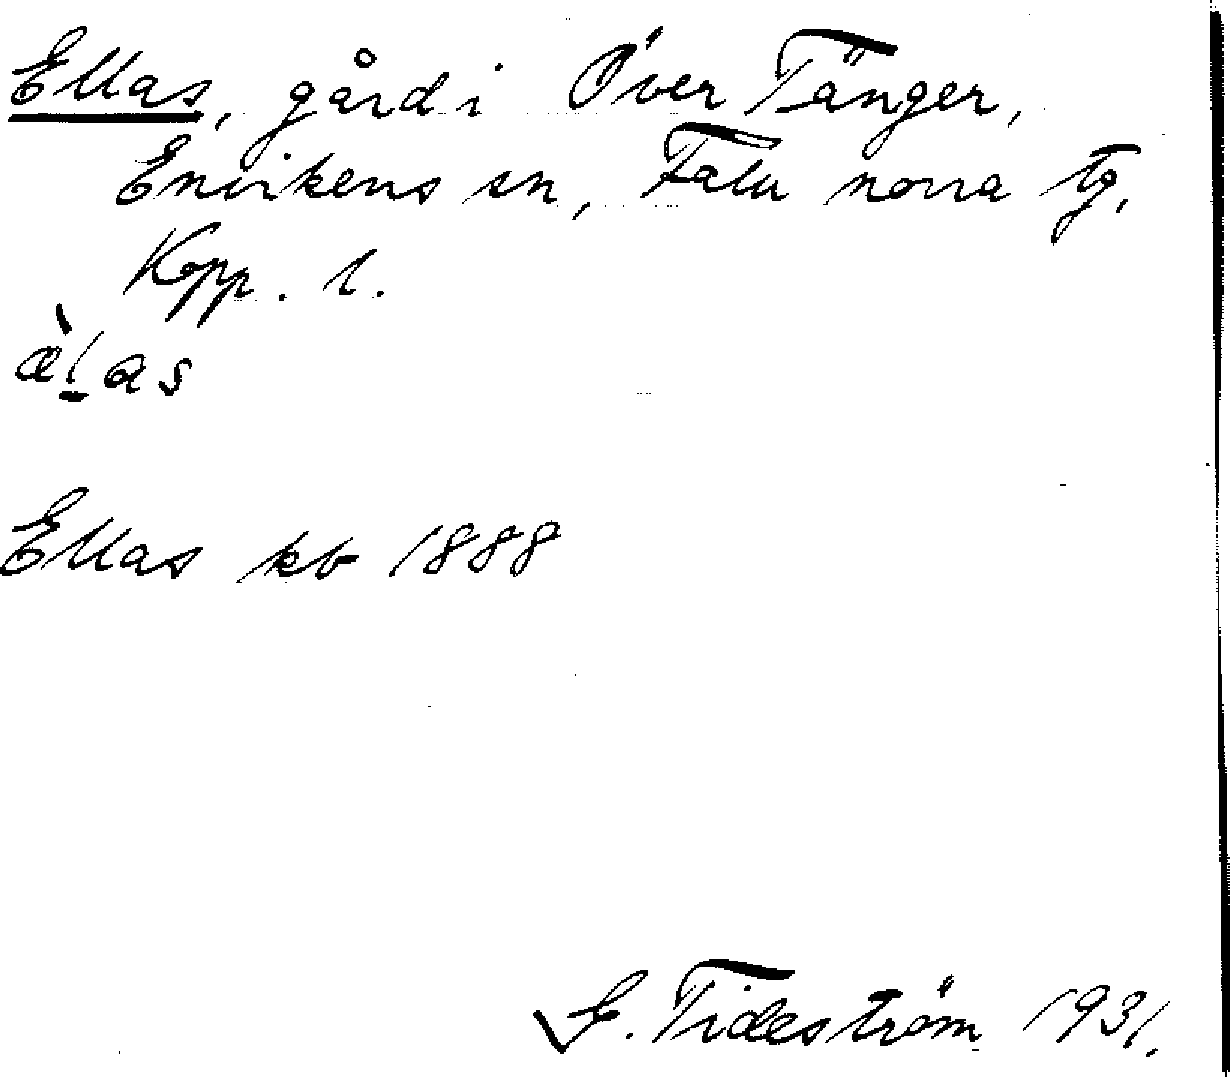 Ellas, gård i Över Tänger,
Envikens sn, Falu norra tg,
Kopp. l.
æ̀l̠as
Ellas kb 1888
G. Tideström 1931.